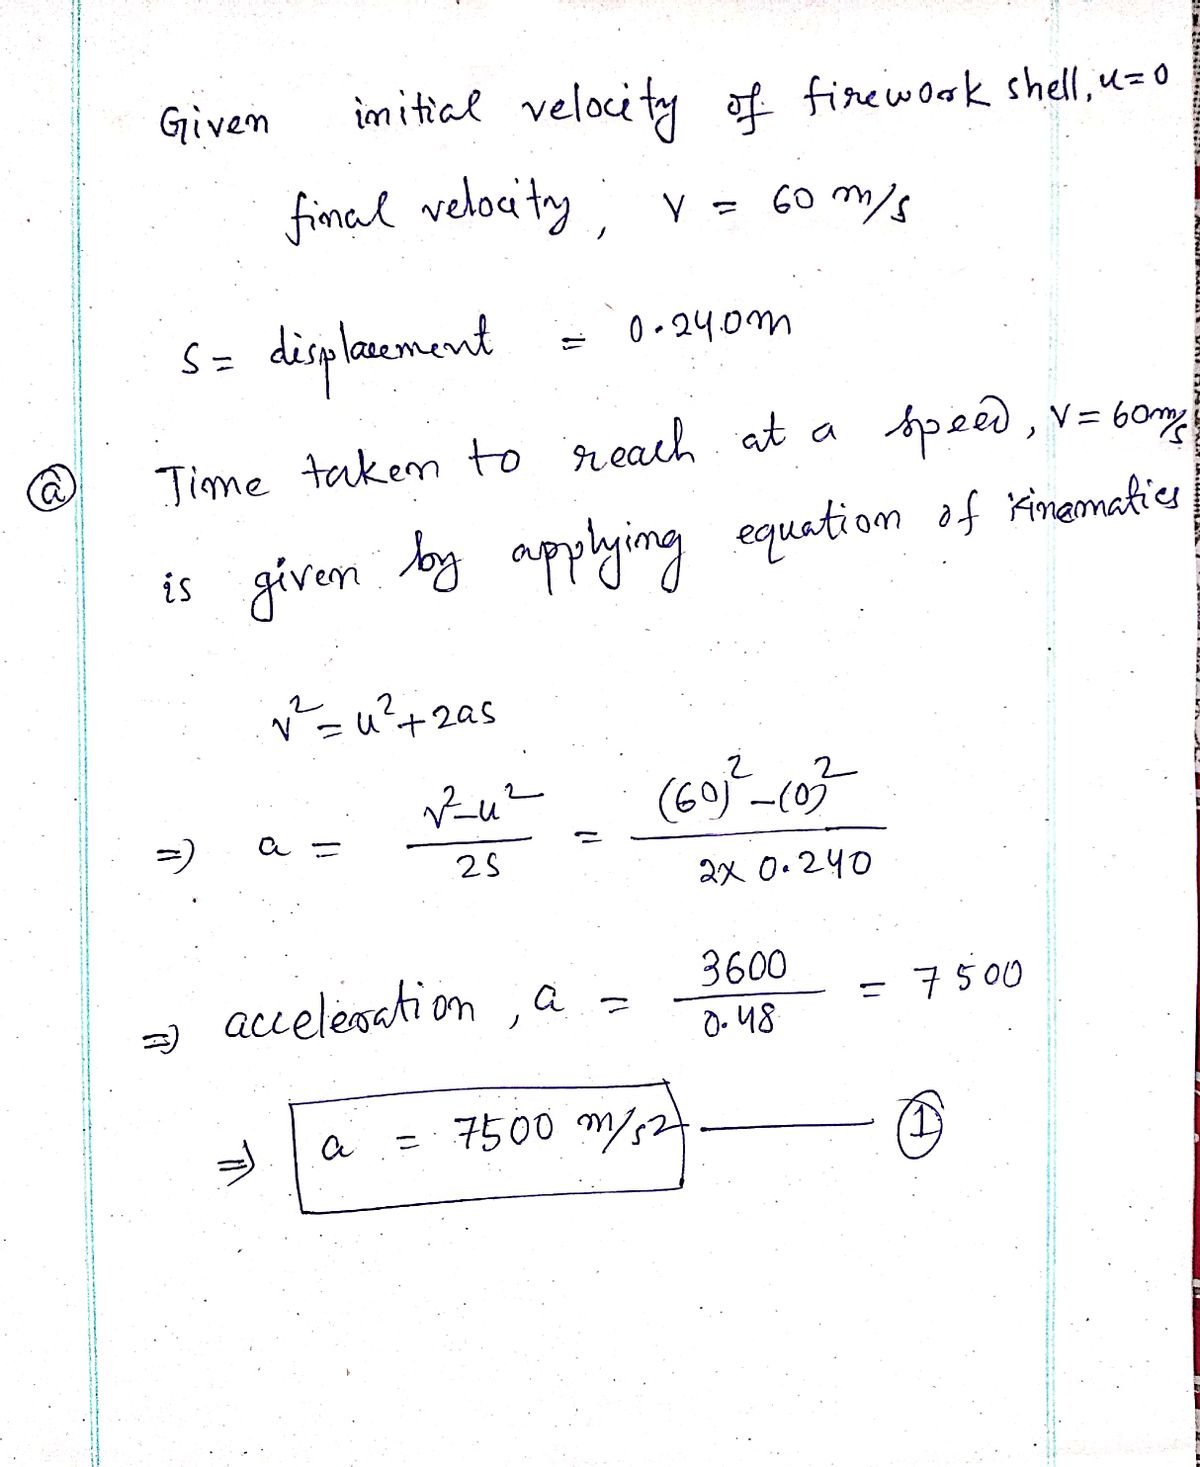 Given initial velocity of firework shell, u=0
final velocity, v = 60 m/s
S = displacement = 0.240m
(a) Time taken to reach at a speed, v = 60m/s
is given by applying equation of kinematics
v² = u² + 2as
=> a = (v²-u²)/(2s) = ((60)²-(0)²)/(2x 0.240)
=> acceleration, a = 3600/0.48 = 7500
=> a = 7500 m/s2 —— ①